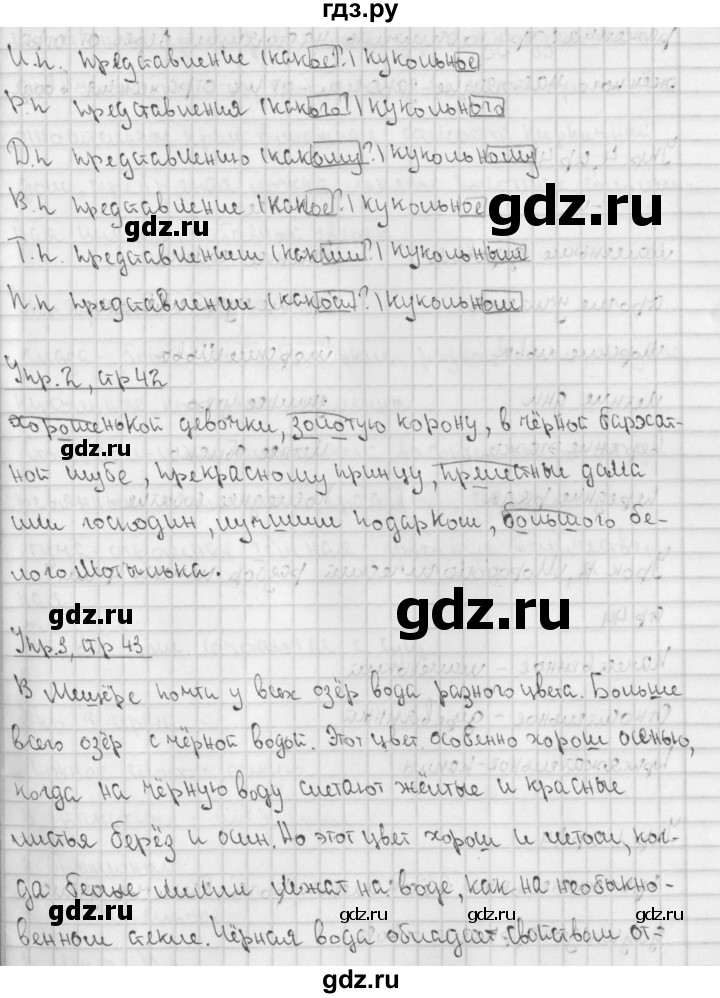 гдз.ру
И.п. представление (какое?) кукольное
Р.п представления (какого?) кукольного
Д.п представлению (какому?) кукольному
В.п представление (какое?) кукольное
gdz.ru
gdz.ru
Т.п. представлением (каким?) кукольным
П.п представлении (каком?) кукольном
Упр.2, стр 42
хорошенькой девочки, золотую корону, в чёрной бархат-
ной шубе, прекрасному принцу, прелестные дама
или господин, лучшим подарком, большого бе-
лого мотылька.
gdz.ru
gdz.ru
Упр.3, стр 43
В Мещёре почти у всех озёр вода разного цвета. Больше
всего озёр с чёрной водой. Этот цвет особенно хорош осенью,
когда на чёрную воду слетают жёлтые и красные
листья берёз и осин. Но этот цвет хорош и летом, ког-
да белые лилии лежат на воде, как на необыкно-
gdz.ru
gdz.ru
gdz.ru
gdz.ru
венном стекле. Чёрная вода обладает свойством от-
gdz.ru
gdz.ru